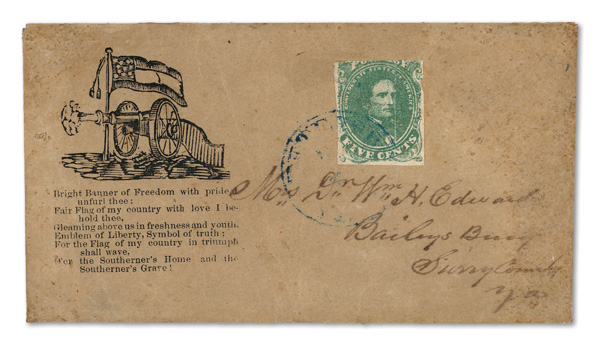 POSTAGE
CONFEDERATE STATES OF AMERICA
FIVE CENTS
Bright Banner of Freedom with pride
unfurl thee;
Fair Flag of my country with love I be-
hold thee,
Gleaming above us in freshness and youth.
Emblem of Liberty, Symbol of truth;
For the Flag of my country in triumph
shall wave,
O'er the Southerner's Home and the
Southerner's Grave!
Mrs Dr Wm H. Edward
Baileys
Surry County
Va